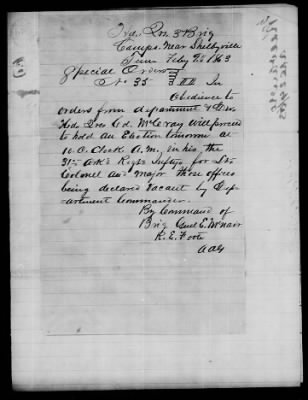 Hd. Qrs. 3d Brig
Camp Near Shelbyville
Tenn Feby 9th 1863
Special Orders
No 35 III In
Obedience to
orders from department & Div
Hd. Qrs Col. McCray will proceed
to hold an Election tomorrow at
10 O. Clock A.M. in his, the
31st Ark's Regt Inftry for Lt
Colonel and major those offices
being declared vacant by Dep-
artment Commander.
By Command of
Brig Genl E. McNair
R. E. Foote
AAG